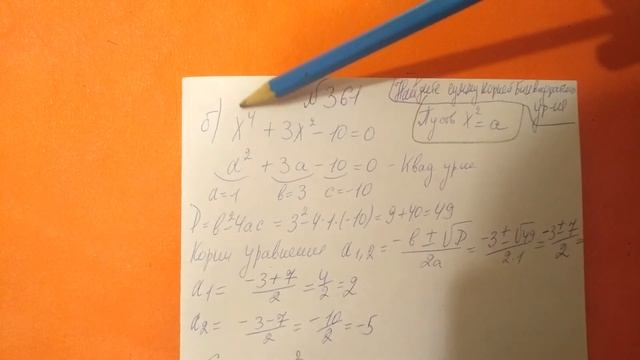 №361
Найдите сумму корней биквадратного
ур-ия
б) x⁴ + 3x² - 10 = 0
Пусть x² = a
a² + 3a - 10 = 0 - Квад ур-ие
a=1 в=3 c=-10
D = в² - 4ac = 3² - 4·1·(-10) = 9 + 40 = 49
Корни уравнения a₁,₂ = (-в ± √D)/2a = (-3 ± √49)/2·1 = (-3 ± 7)/2 =
a₁ = (-3+7)/2 = 4/2 = 2
a₂ = (-3-7)/2 = -10/2 = -5